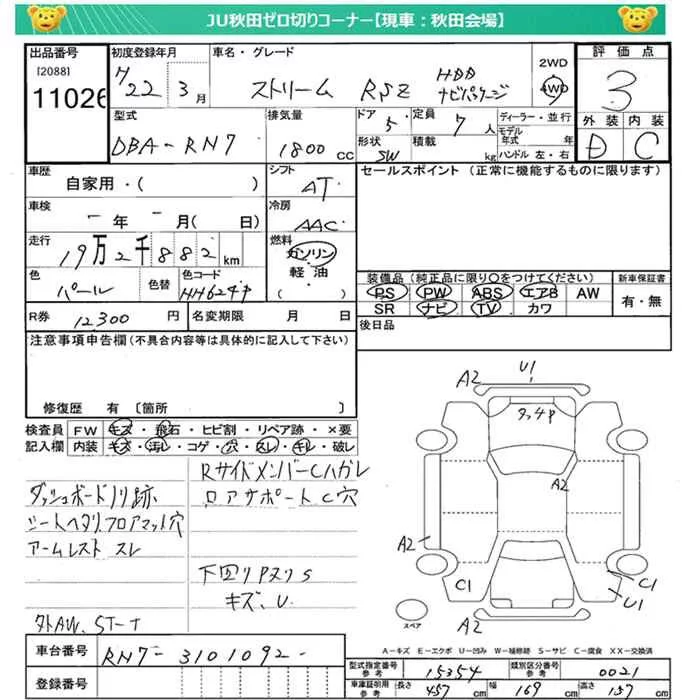 JU秋田ゼロ切りコーナー【現車：秋田会場】
出品番号
[2088]
11026
初度登録年月
H22年 3月
車名・グレード
ストリーム RSZ HDD ナビパッケージ
2WD
4WD
評価点
3
外装 内装
D C
型式
DBA-RN7
排気量
1800 CC
ドア 5
形状 SW
定員 7人
積載 kg
ディーラー・並行
モデル年式 年
ハンドル 左・右
車歴
自家用・( )
シフト
AT
セールスポイント (正常に機能するものに限ります)
車検
- 年 - 月( 日)
冷房
AAC
走行
19万2千882km
燃料
ガソリン
軽油
( )
色
パール
色替
色コード
NH624P
装備品 (純正品に限り○をつけてください)
PS PW ABS エアB AW
SR ナビ TV カワ
新車保証書
有・無
R券 12300円
名変期限 月 日
後日品
注意事項申告欄 (不具合内容等は具体的に記入して下さい)
修復歴 有 〔箇所 〕
検査員記入欄
FW キズ・飛石・ヒビ割・リペア跡・×要
内装 キズ・汚レ・コゲ・穴・スレ・キレ・破レ
ダッシュボードノリ跡
シートヘタリ、フロアマット穴
アームレスト スレ
外AW、ST-T
RサイドメンバーCハガレ
ロアサポートC穴
下回りPヌリS
キズ、U
A2
U1
タッチP
A2
A2
C1
C1
U1
A2
スペア
A－キズ E－エクボ U－凹み W－補修跡 S－サビ C－腐食 XX－交換済
車台番号 RN7-3101092-
登録番号
型式指定番号 参考 15354
類別区分番号 参考 0021
車庫証明用 参考 長さ 457 幅 169 高さ 157